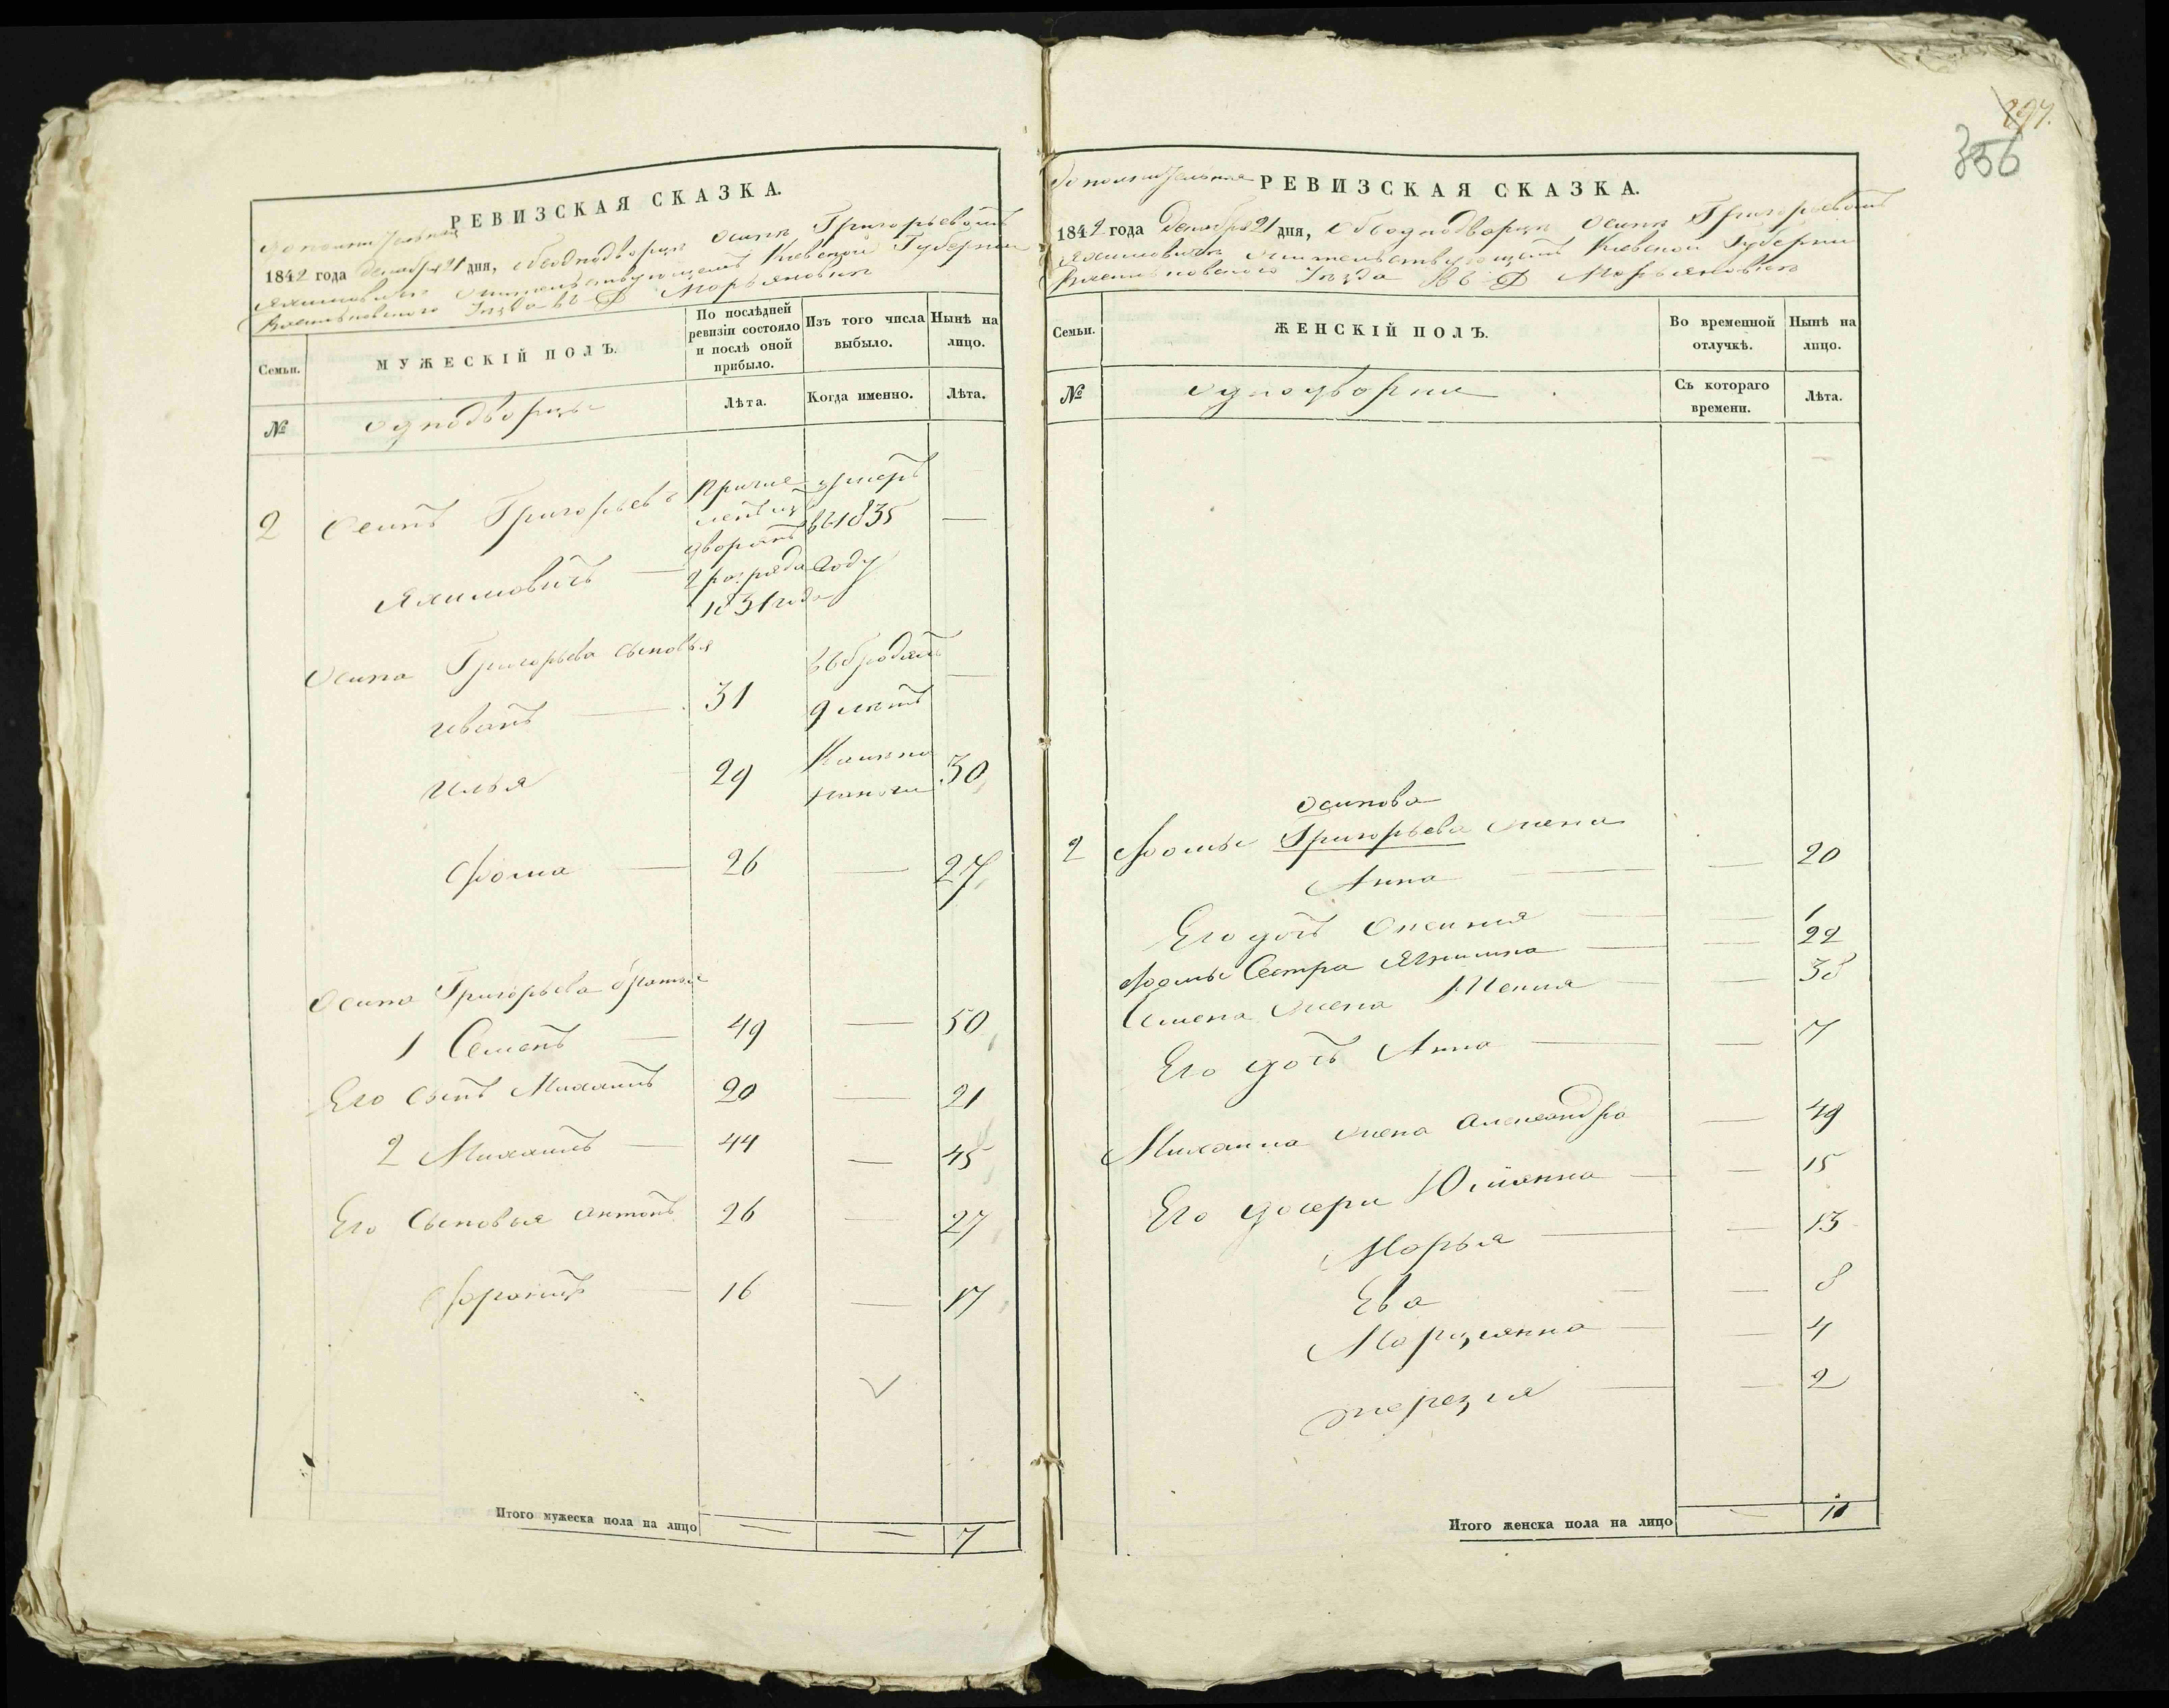 РЕВИЗСКАЯ СКАЗКА.
дополнительная
1842 года декабря 21 дня, Объ однодворцѣ Осипѣ Григорьевомъ
жительствующемъ Киевской Губернии
Уѣзда въ Д Марьяновкѣ
Семьи.
МУЖЕСКІЙ ПОЛЪ.
По послѣдней ревизіи состояло и послѣ оной прибыло.
Изъ того числа выбыло.
Нынѣ на лицо.
№
однодворцы
Лѣта.
Когда именно.
Лѣта.
2 Осипъ Григорьевъ
Причисленъ изъ дворянъ 2 разряда 1831 года
умеръ въ 1835 году
—
Осипа Григорьева сыновья
Иванъ — 31
9 лѣтъ —
Илья 29
30
Фома — 26 — 27
Осипа Григорьева братья
1 Семенъ — 49 — 50
Его сынъ Михаилъ 20 — 21
2 Михаилъ — 44 — 45
Его сыновья Антонъ 26 — 27
Францъ — 16 — 17
Итого мужеска пола на лицо — — 7
297.
356
дополнительная РЕВИЗСКАЯ СКАЗКА.
1842 года Декабря 21 дня, Объ однодворцѣ Осипѣ Григорьевомъ
жительствующемъ Киевской Губернии
Уѣзда Въ Д Марьяновкѣ
Семьи.
ЖЕНСКІЙ ПОЛЪ.
Во временной отлучкѣ.
Нынѣ на лицо.
№
однодворки
Съ котораго времени.
Лѣта.
Осипова
2 Фомы Григорьева жена
Анна — — 20
Его дочь — — 1
Фомы Сестра — — 22
Семена жена — — 38
Его дочь Анна — — 7
Михаила жена Александра — 49
Его дочери Юлианна — — 15
Марья — — 13
Ева — — 8
Марцианна — — 4
Терезия — — 2
Итого женска пола на лицо — 11